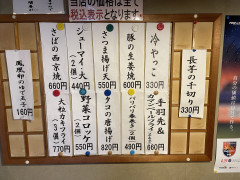 当店の価格は全て
税込表示となります。
長芋の千切り
330円
冷やっこ
330円
手羽先&
カマンベールフライ
550円
豚の生姜焼
660円
パリパリ春巻き
490円
さつま揚げ天
550円
タコの唐揚げ
820円
シューマイ
440円
野菜コロッケ
(2個)
550円
さばの西京焼
660円
大粒カキフライ
770円
鳳凰卵のゆで玉子
160円